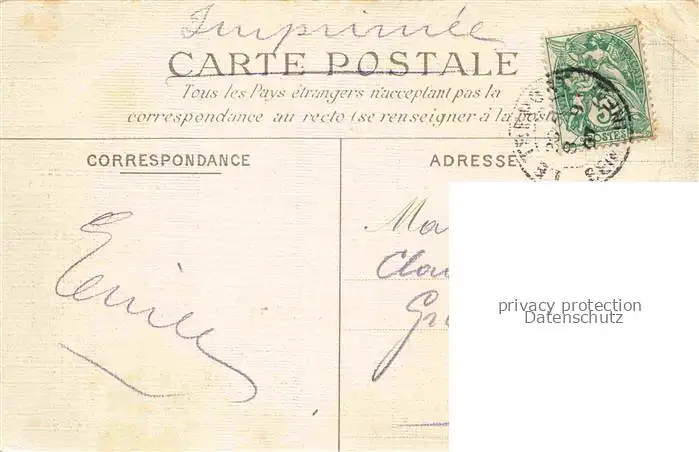 Imprimée
CARTE POSTALE
Tous les Pays étrangers n'acceptant pas la
correspondance au recto (se renseigner à la poste
CORRESPONDANCE
ADRESSE
POSTES
Ma
Cla
Gr
privacy protection
Datenschutz